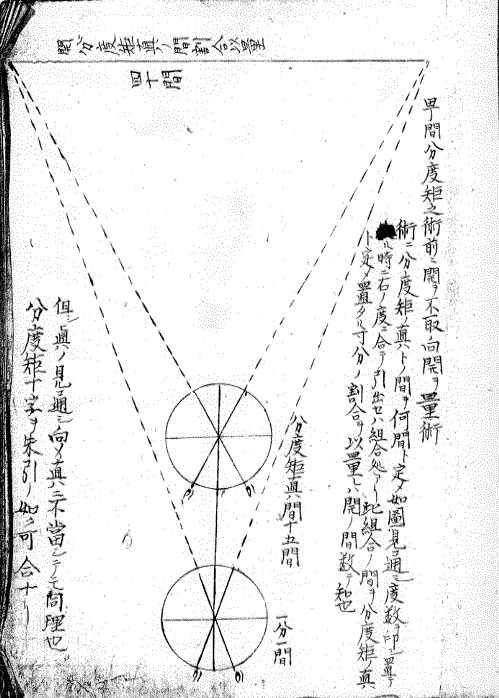 開ヲ分度矩真ノ間割合以量
四十間
早間分度矩之術前ニ開ヲ不取向開ヲ量術
術ニ分度矩真トノ間ヲ何間ト定メ如圖見通シ度数ヲ印シ置
時ニ右ノ度ニ合テ引出セハ組合処アリ此組合ノ間ヲ分度矩真
ト定メ置タル寸分ノ割合ヲ以量レハ開ノ間数ヲ知也
分度矩真間十五間
一分一間
但シ真ノ見通シ向ノ真ニ不當シテモ同理也
分度矩十字ヲ朱引ノ如ク可合ナリ